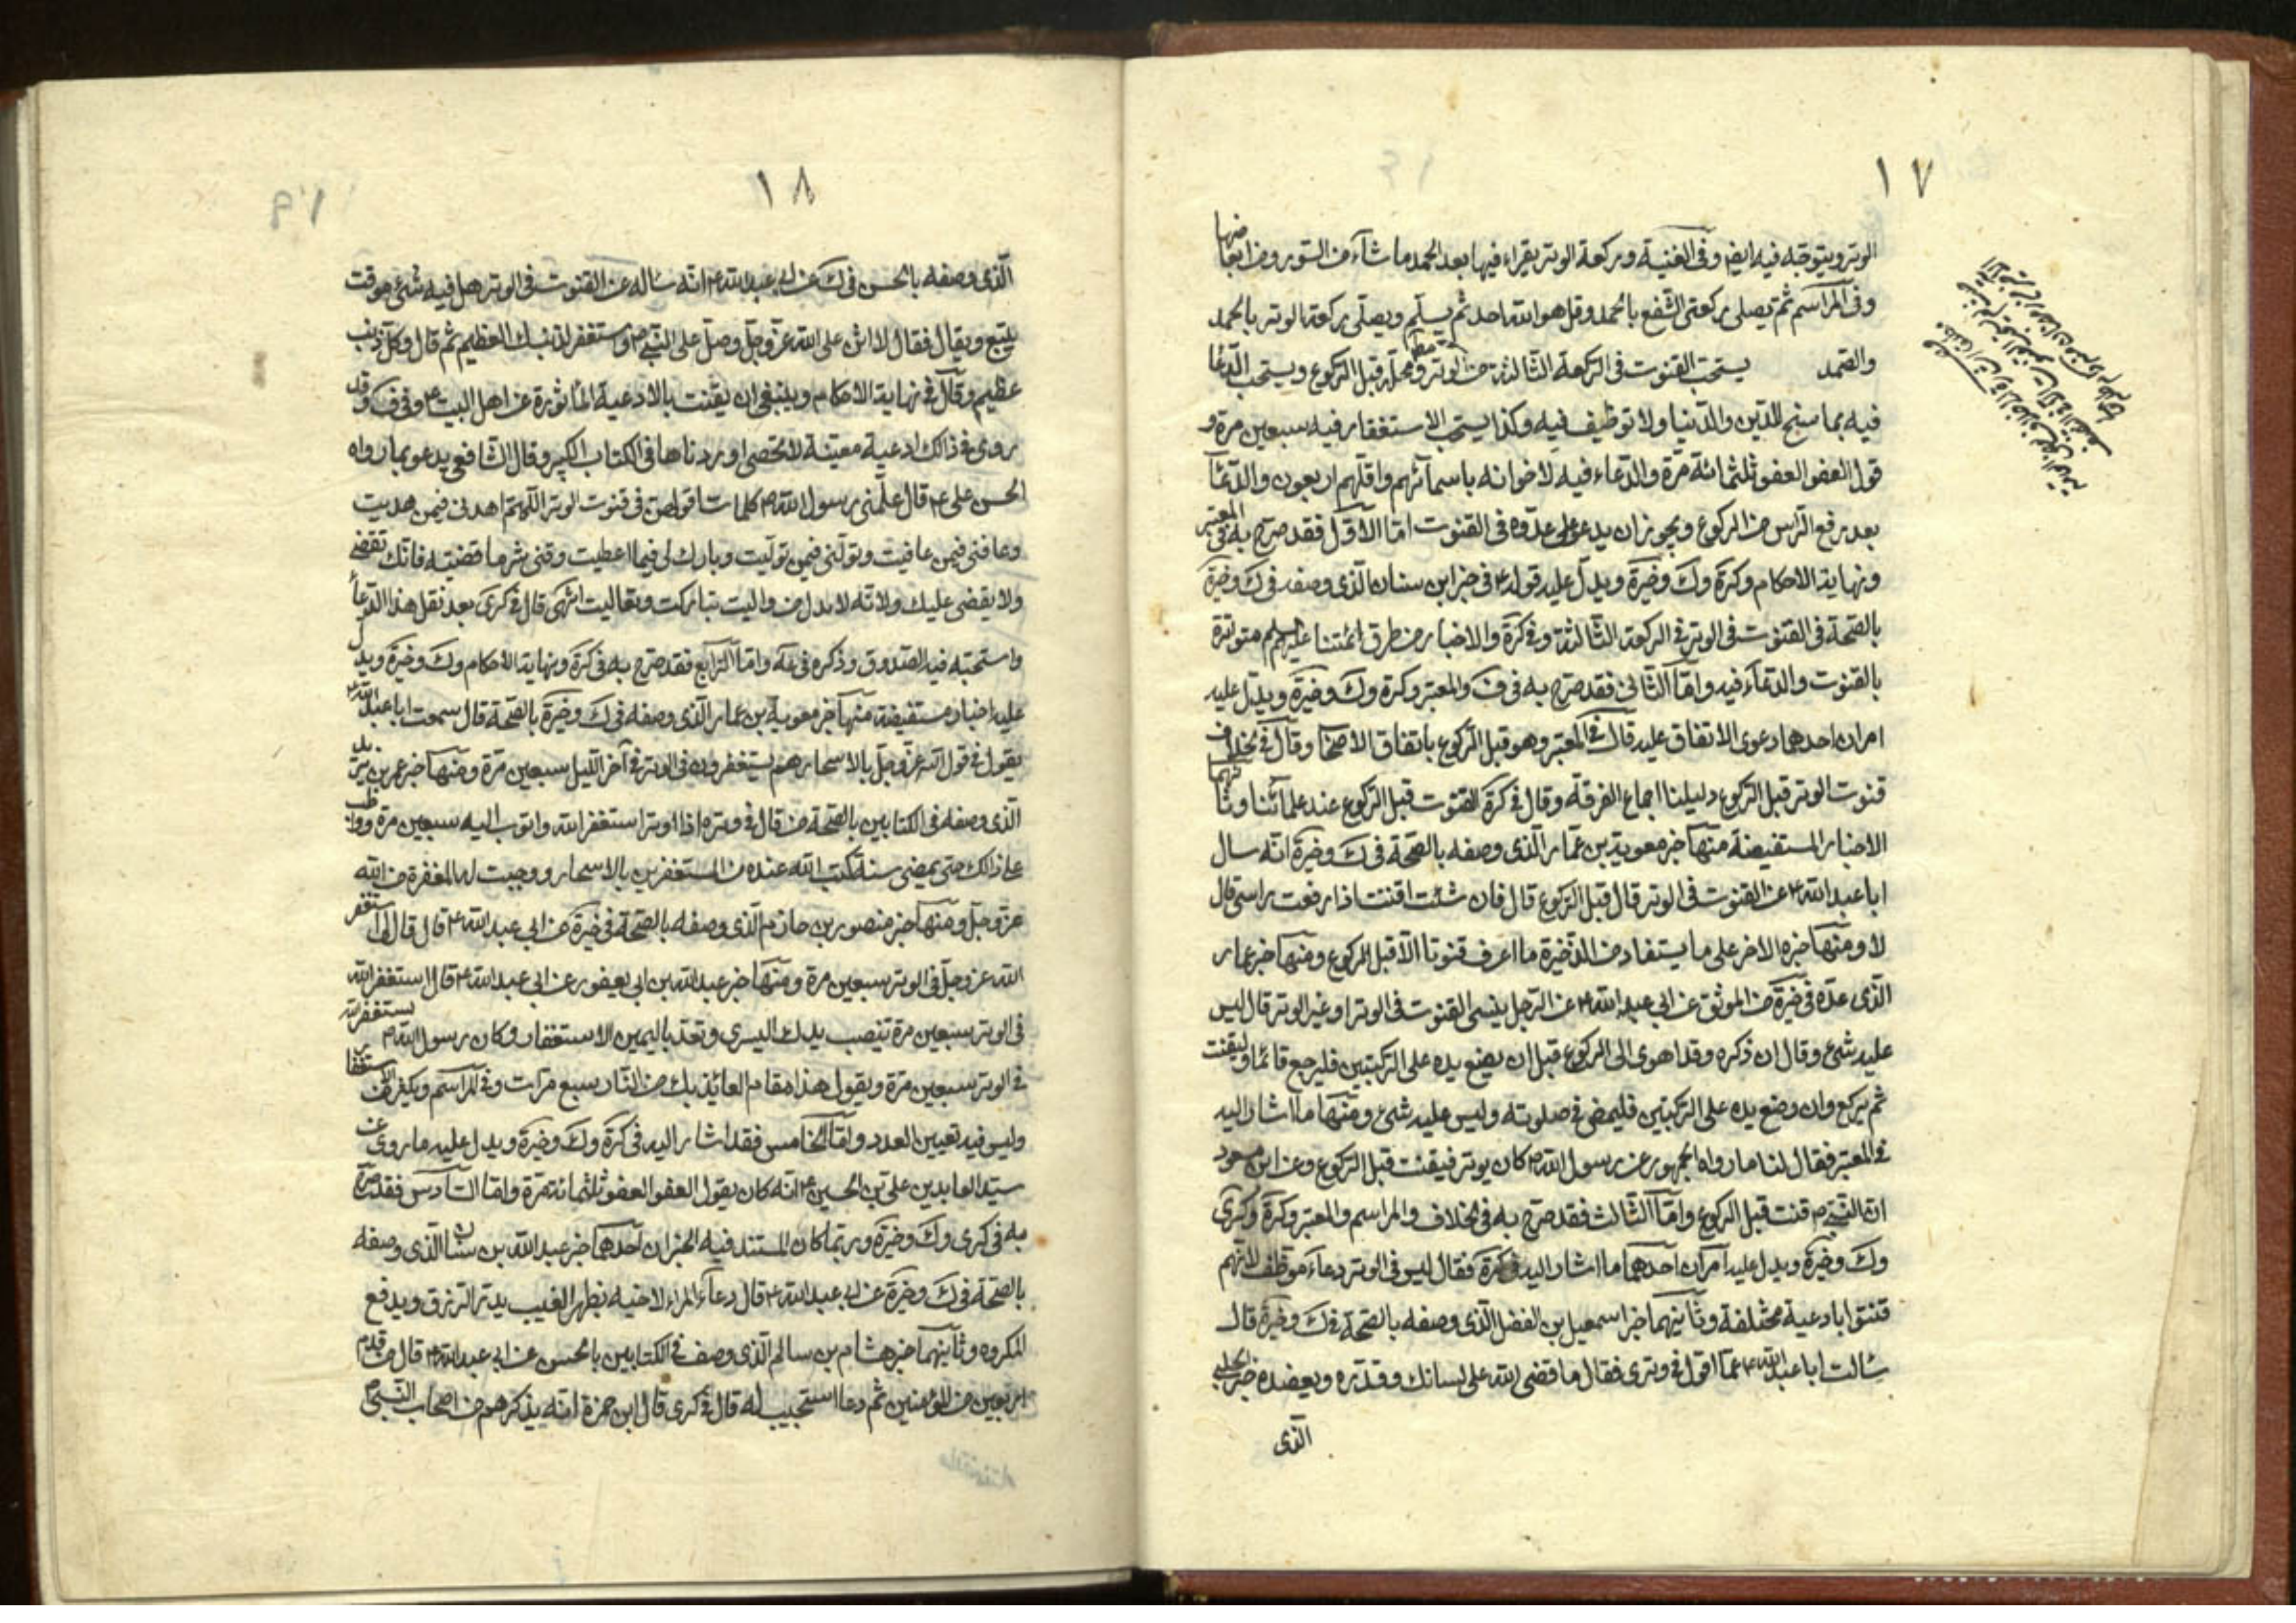 ١٧
الوتر ويتوجه فيه ايضا وفى الغنية وركعة الوتر يقراء فيها بعد الحمد ما شآء من السور ومن ابعاضها
وفى المراسم ثم يصلى ركعتى الشفع بالحمد وقل هو الله احد ثم يسلم ويصلى ركعة الوتر بالحمد
والصمد يستحب القنوت فى الركعة الثالثة من الوتر ومحله قبل الركوع ويستحب الدعا
فيه بما سنح للدين والدنيا ولا توظيف فيه وكذا يستحب الاستغفار فيه سبعين مرة و
قول العفو العفو ثلثمائة مرة والدعاء فيه لاخوانه باسمآئهم واقلهم اربعون والدعآء
بعد رفع الراس من الركوع ويجوز ان يدعو على عدوه فى القنوت اما الاول فقد صرح به فى المعتبر
ونهاية الاحكام وكرة وك وخيرة ويدل عليه قوله ع فى خبر ابن سنان الذى وصفه فى ك وخيرة
بالصحة فى القنوت فى الوتر فى الركعة الثالثة وفى كرة والاخبار من طرق ائمتنا عليهم السلم متواترة
بالقنوت والدعآء فيه واما الثانى فقد صرح به فى ف والمعتبر وكرة وك وخيرة ويدل عليه
امران احدهما دعوى الاتفاق عليه قال فى المعتبر وهو قبل الركوع باتفاق الاصحا وقال فى الخلاف
قنوت الوتر قبل الركوع دليلنا اجماع الفرقة وقال فى كرة القنوت قبل الركوع عند علمائنا وثانيهما
الاخبار المستفيضة منها خبر معوية بن عمار الذى وصفه بالصحة فى ك وخيرة انه سال
ابا عبد الله ع عن القنوت فى الوتر قال قبل الركوع قال فان شئت اقنت اذا رفعت راسى قال
لا ومنها خبره الاخر على ما يستفاد من الذخيرة ما اعرف قنوتا الا قبل الركوع ومنها خبر عمار
الذى عده فى خيرة من الموثق عن ابى عبد الله ع عن الرجل ينسى القنوت فى الوتر او غير الوتر قال ليس
عليه شئ وقال ان ذكره وقد اهوى الى الركوع قبل ان يضع يده على الركبتين فليرجع قائما وليقنت
ثم يركع وان وضع يده على الركبتين فليمض فى صلوته وليس عليه شئ ومنها ما اشار اليه
فى المعتبر فقال لنا ما رواه الجمهور عن رسول الله ص كان يوتر فيقنت قبل الركوع وعن ابن مسعود
ان النبى ص قنت قبل الركوع واما الثالث فقد صرح به فى الخلاف والمراسم والمعتبر وكرة وكرى
وك وخيرة ويدل عليه امران احدهما ما اشار اليه فى كرة فقال ليس فى الوتر دعاء موظف لانهم
قنتوا بادعية مختلفة وثانيهما خبر اسمعيل بن الفضل الذى وصفه بالصحة فى ك وخيرة قال
سالت ابا عبد الله ع عما اقول فى وترى فقال ما قضى الله على لسانك وقدره ويعضده خبر الحلبى
الذى
١٨
الذى وصفه بالحسن فى ك عن ابى عبد الله ع انه ساله عن القنوت فى الوتر هل فيه شئ موقت
يتبع ويقال فقال لا اثن على الله عز وجل وصل على النبى ص واستغفر لذنبك العظيم ثم قال وكل ذنب
عظيم وقال فى نهاية الاحكام وينبغى ان يقنت بالادعية الماثورة عن اهل البيت ع وفى ف وقد
روى فى ذالك ادعية معينة لا تحصى اوردناها فى الكتاب الكبير وقال الشافعى يدعو بما رواه
الحسن على ع قال علمنى رسول الله ص كلمات اقولهن فى قنوت الوتر اللهم اهدنى فيمن هديت
وعافنى فيمن عافيت وتولنى فيمن توليت وبارك لى فيما اعطيت وقنى شر ما قضيت فانك تقضى
ولا يقضى عليك ولانه لا يذل من واليت تباركت وتعاليت انتهى قال فى كرى بعد نقل هذا الدعا
واستحبه فيه الصدوق وذكره فى عه واما الرابع فقد صرح به فى كرة ونهاية الاحكام وك وخيرة ويدل
عليه اخبار مستفيضة منها خبر معوية بن عمار الذى وصفه فى ك وخيرة بالصحة قال سمعت ابا عبد الله ع
يقول فى قول الله عز وجل بالاسحار هم يستغفرون فى الوتر فى آخر الليل سبعين مرة ومنها خبر عمر بن يزيد
الذى وصفه فى الكتابين بالصحة من قال فى وتره اذا اوتر استغفر الله واتوب اليه سبعين مرة وواظب
على ذالك حتى يمضى سنة كتب الله عنده من المستغفرين بالاسحار ووجبت له المغفرة من الله
عز وجل ومنها خبر منصور بن حازم الذى وصفه بالصحة فى خيرة عن ابى عبد الله ع قال قال لى استغفر
الله عز وجل فى الوتر سبعين مرة ومنها خبر عبد الله بن ابى يعفور عن ابى عبد الله ع قال استغفر الله
فى الوتر سبعين مرة تنصب يدك اليسرى وتعد باليمين الاستغفار وكان رسول الله ص يستغفر الله
فى الوتر سبعين مرة ويقول هذا مقام العائذ بك من النار سبع مرات وفى المراسم ويكثر من الاستغفار
وليس فيه تعيين العدد واما الخامس فقد اشار اليه فى كرة وك وخيرة ويدل عليه ما روى عن
سيد العابدين على بن الحسين ع انه كان يقول العفو العفو ثلثمائة مرة واما السادس فقد صرح
به فى كرى وك وخيرة وربما كان المستند فيه الخبران احدهما خبر عبد الله بن سنان الذى وصفه
بالصحة فى ك وخيرة عن ابى عبد الله ع قال دعآء المرء لاخيه بظهر الغيب يدر الرزق ويدفع
المكروه وثانيهما خبر هشام بن سالم الذى وصف فى الكتابين بالحسن عن ابى عبد الله ع قال من قدم
اربعين من المؤمنين ثم دعا استجيب له قال فى كرى قال ابن حمزة انه يذكرهم من اصحاب النبى ص